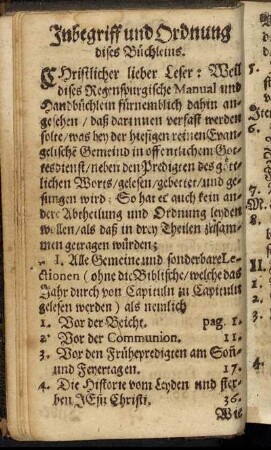 Inbegriff und Ordnung
dises Büchleins.
CHristlicher lieber Leser: Weil
dises Regenspurgische Manual und
Handbüchlein fürnemblich dahin an-
gesehen / daß darinnen verfast werden
solte / was bey der hiesigen reinen Evan-
gelischē Gemeind in offentlichem Got-
tesdienst / neben den Predigten des gött-
lichen Worts / gelesen / gebettet / und ge-
sungen wird: So hat er auch kein an-
dere Abtheilung und Ordnung leyden
wollen / als daß in drey Theilen zusam-
men getragen würden;
I. Alle Gemeine und sonderbare Le-
ctionen (ohne die Biblische / welche das
Jahr durch von Capituln zu Capituln
gelesen werden) als nemlich
1. Vor der Beicht. pag. 1.
2. Vor der Communion. 11.
3. Vor den Frühepredigten am Soñ-
und Feyertagen. 17.
4. Die Historie vom Leyden und ster-
ben JEsu Christi. 36.
Wie